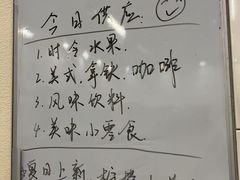 今日供应:
1.时令水果.
2.美式.拿铁.咖啡
3.风味饮料.
4.美味小零食.
夏日上新